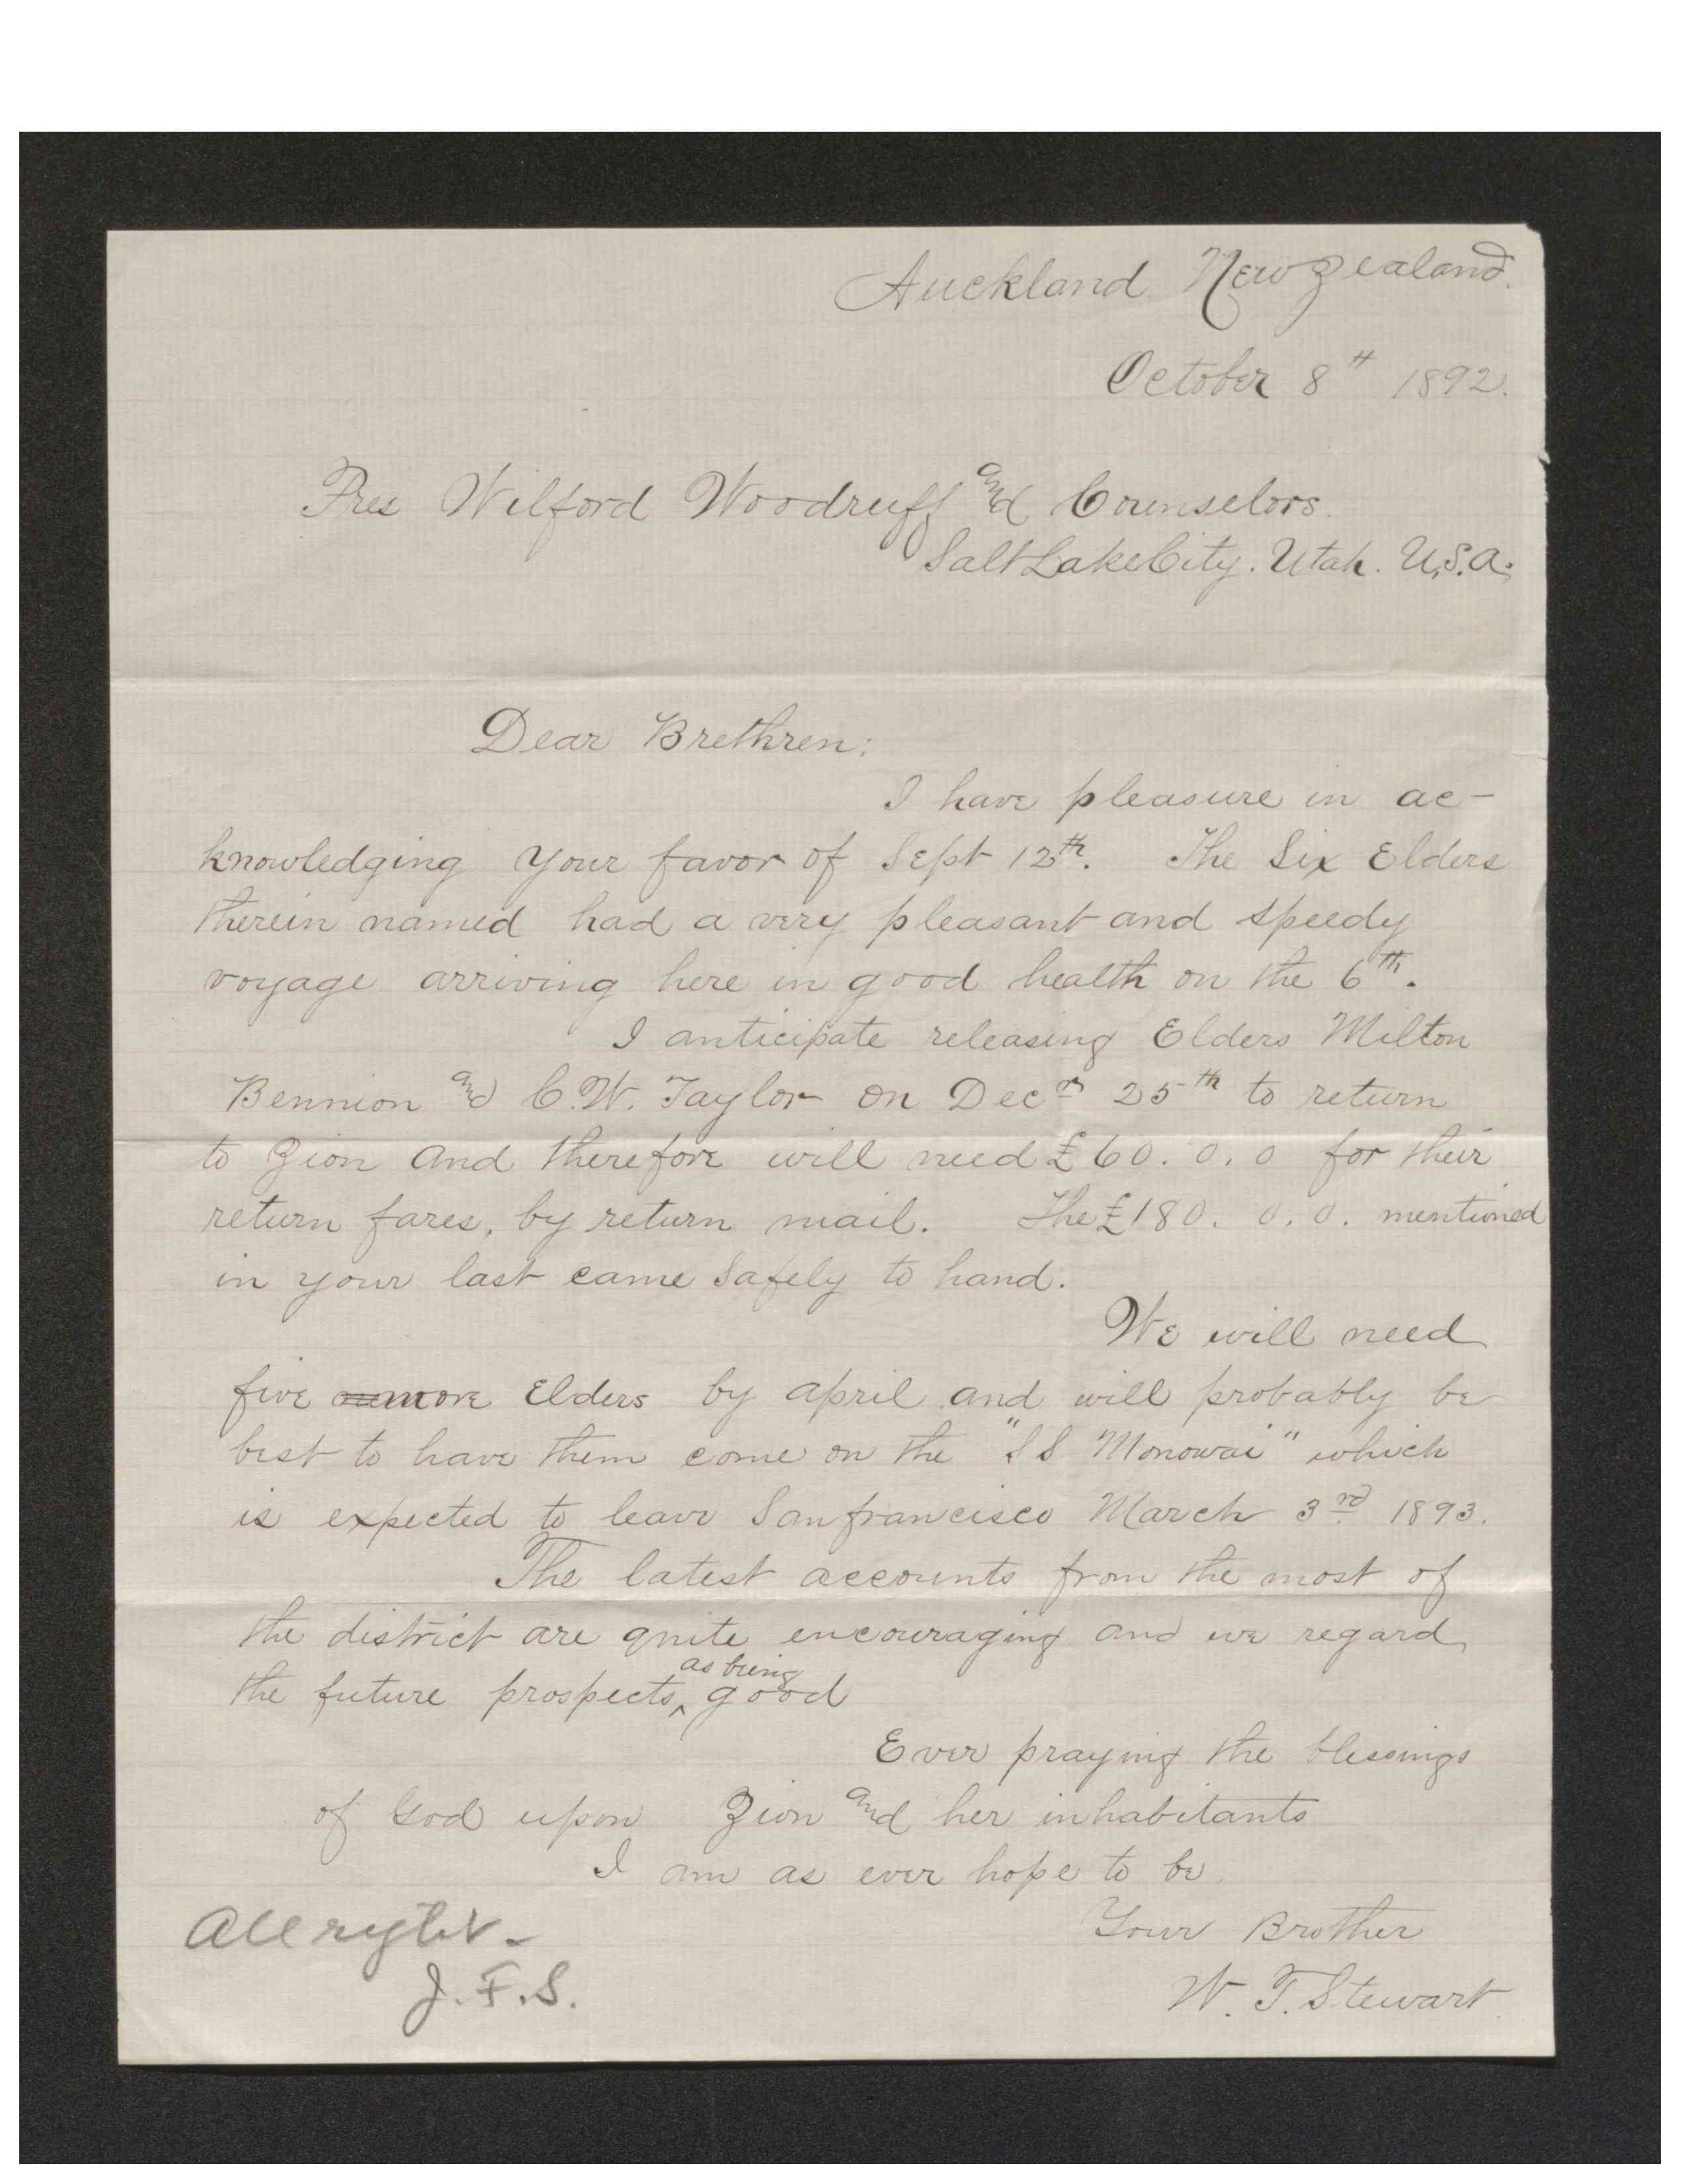 Auckland New Zealand.
October 8th 1892.
Pres Wilford Woodruff and Counselors.
Salt Lake City. Utah. U.S.A.
Dear Brethren:
I have pleasure in ac-
knowledging your favor of Sept 12th. The Six Elders
therein named had a very pleasant and speedy
voyage arriving here in good health on the 6th.
I anticipate releasing Elders Milton
Bennion and C.W. Taylor on Decr 25th to return
to Zion and therefore will need £60. 0. 0 for their
return fares, by return mail. The £180. 0. 0. mentioned
in your last came safely to hand.
We will need
five more Elders by april and will probably be
best to have them come on the "S S Monowai" which
is expected to leave Sanfrancisco March 3rd 1893.
The latest accounts from the most of
the district are quite encouraging and we regard
the future prospects as being good
Ever praying the blessings
of God upon Zion and her inhabitants
I am as ever hope to be
Your Brother
W. T. Stewart.
All right.
J.F.S.